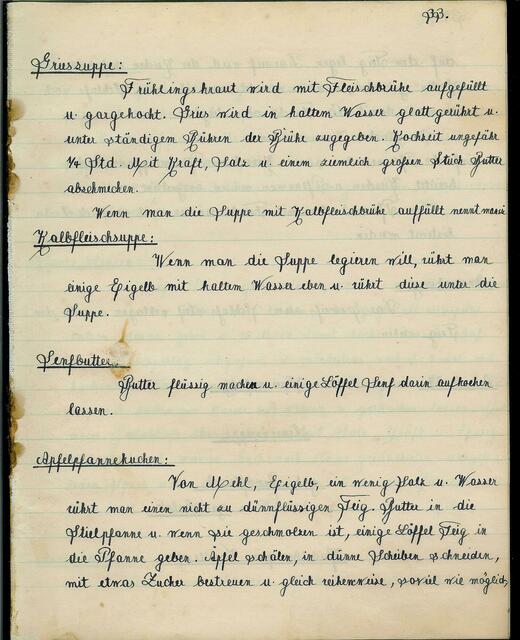 33.
Griessuppe:
Frühlingskraut wird mit Fleischbrühe aufgefüllt
u. gargekocht. Gries wird in kaltem Wasser glatt gerührt u.
unter ständigem Rühren der Brühe zugegeben. Kochzeit ungefähr
1/4 Std. Mit Kraft, Salz u. einem ziemlich großen Stück Butter
abschmecken.
Wenn man die Suppe mit Kalbfleischbrühe auffüllt nennt man sie
Kalbfleischsuppe:
Wenn man die Suppe legieren will, rührt man
einige Eigelb mit kaltem Wasser eben u. rührt diese unter die
Suppe.
Senfbutter.
Butter flüssig machen u. einige Löffel Senf darin aufkochen
lassen.
Apfelpfannekuchen:
Von Mehl, Eigelb, ein wenig Salz u. Wasser
rührt man einen nicht zu dünnflüssigen Teig. Butter in die
Stielpfanne u. wenn sie geschmolsen ist, einige Löffel Teig in
die Pfanne geben. Äpfel schälen, in dünne Scheiben schneiden,
mit etwas Zucker bestreuen u. gleich reihenweise, soviel wie möglich,